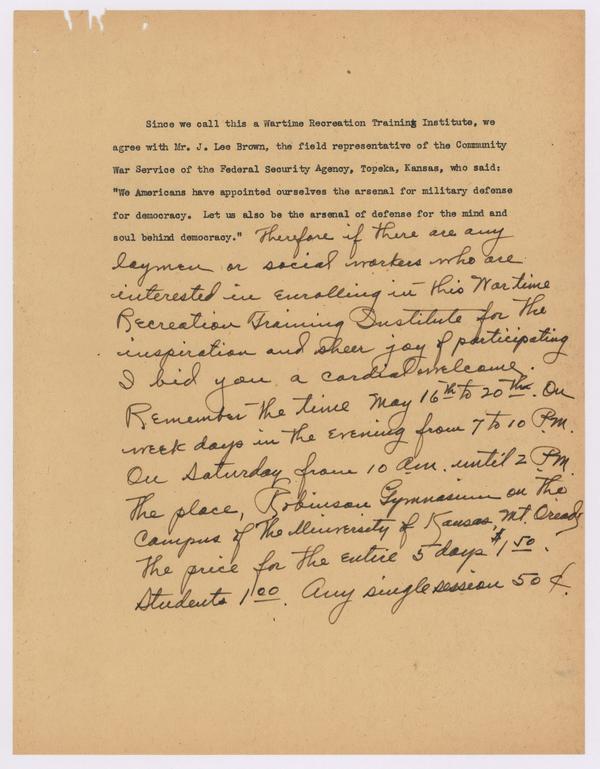 Since we call this a Wartime Recreation Training Institute, we
agree with Mr. J. Lee Brown, the field representative of the Community
War Service of the Federal Security Agency, Topeka, Kansas, who said:
"We Americans have appointed ourselves the arsenal for military defense
for democracy. Let us also be the arsenal of defense for the mind and
soul behind democracy." Therefore if there are any
laymen or social workers who are
interested in enrolling in this Wartime
Recreation Training Institute for the
inspiration and sheer joy of participating
I bid you a cordial welcome.
Remember the time May 16th to 20th. On
week days in the evening from 7 to 10 P.M.
On Saturday from 10 a.m. until 2 P.M.
The place, Robinson Gymnasium on the
Campus of The University of Kansas, Mt. Oready
The price for the entire 5 days $1.50.
Students 1.00. Any single session 50 ¢.